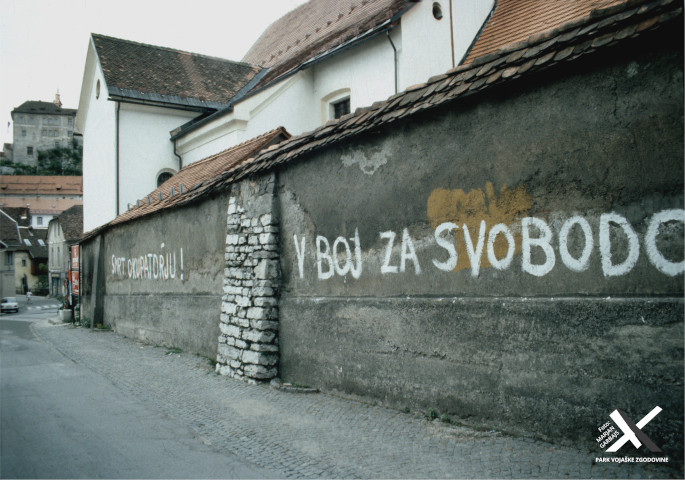 SMRT OKUPATORJU!
V BOJ ZA SVOBODO
Foto:
MARJAN
GARBAJS
PARK VOJAŠKE ZGODOVINE